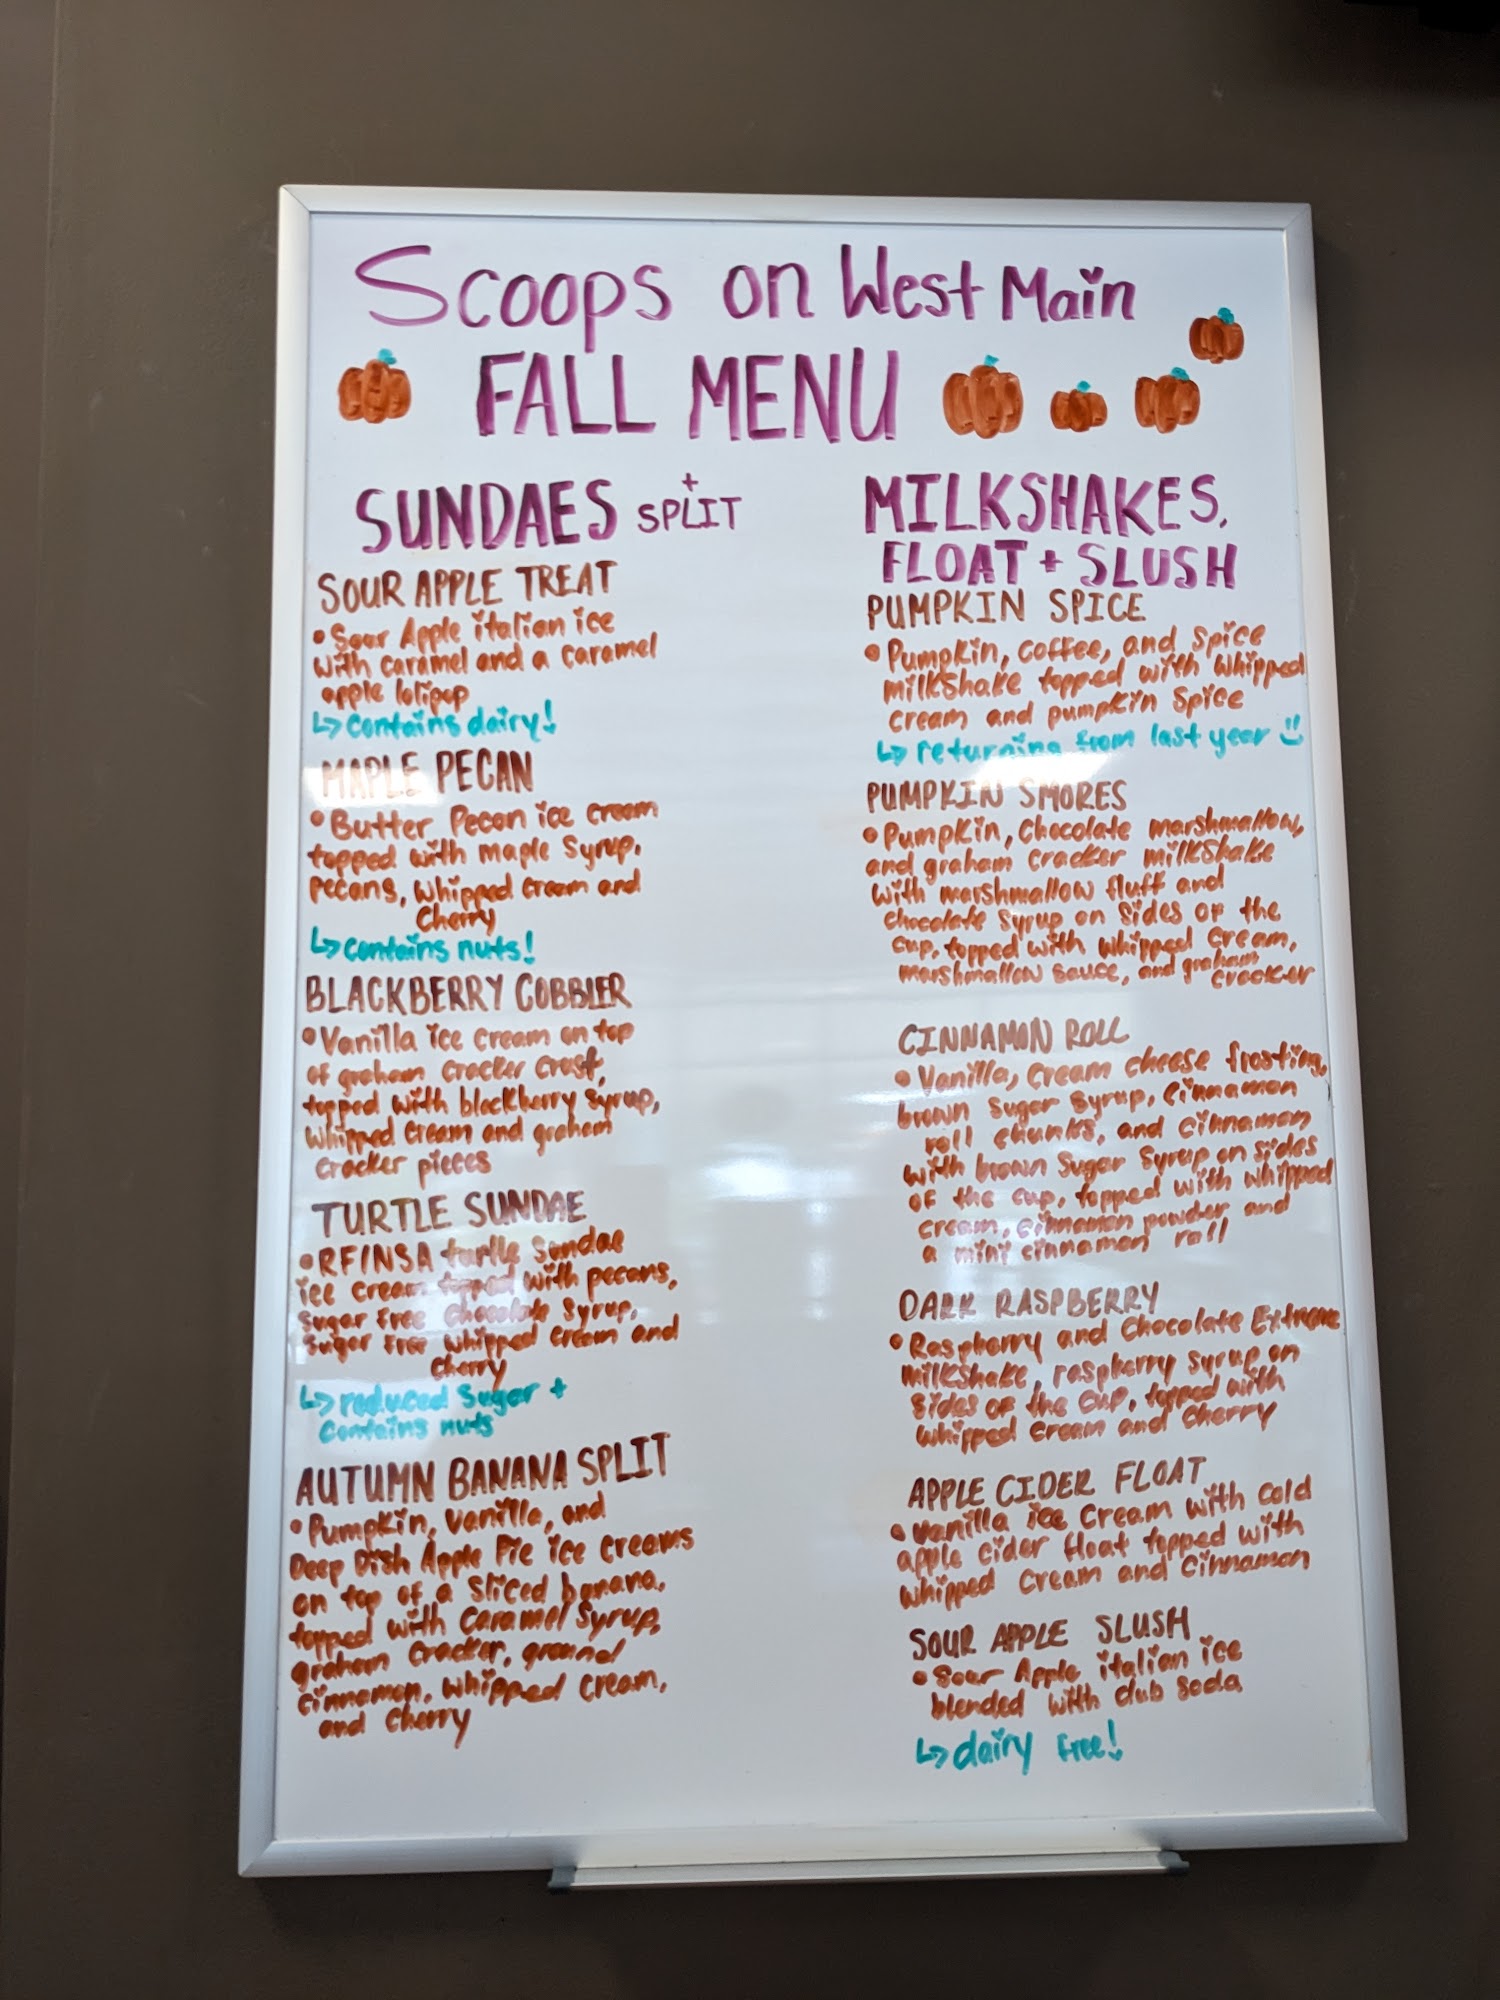 Scoops on West Main
FALL MENU
SUNDAES + SPLIT
SOUR APPLE TREAT
• Sour Apple italian ice
with caramel and a caramel
apple lolipop
↳ contains dairy!
MAPLE PECAN
• Butter Pecan ice cream
topped with maple syrup,
pecans, whipped cream and
cherry
↳ contains nuts!
BLACKBERRY COBBLER
• Vanilla ice cream on top
of graham cracker crust,
topped with blackberry syrup,
whipped cream and graham
cracker pieces
TURTLE SUNDAE
• RF/NSA turtle sundae
ice cream topped with pecans,
sugar free chocolate syrup,
sugar free whipped cream and
cherry
↳ reduced sugar +
contains nuts
AUTUMN BANANA SPLIT
• Pumpkin, vanilla, and
Deep Dish Apple Pie ice creams
on top of a sliced banana,
topped with caramel syrup,
graham cracker, ground
cinnamon, whipped cream,
and cherry
MILKSHAKES,
FLOAT + SLUSH
PUMPKIN SPICE
• Pumpkin, coffee, and spice
milkshake topped with whipped
cream and pumpkin spice
↳ returning from last year
PUMPKIN SMORES
• Pumpkin, chocolate marshmallow,
and graham cracker milkshake
with marshmallow fluff and
chocolate syrup on sides of the
cup, topped with whipped cream,
marshmallow sauce, and graham
cracker
CINNAMON ROLL
• Vanilla, cream cheese frosting,
brown sugar syrup, cinnamon
roll chunks, and cinnamon
with brown sugar syrup on sides
of the cup, topped with whipped
cream, cinnamon powder and
a mini cinnamon roll
DARK RASPBERRY
• Raspberry and Chocolate Extreme
milkshake, raspberry syrup on
sides of the cup, topped with
whipped cream and cherry
APPLE CIDER FLOAT
• Vanilla ice cream with cold
apple cider float topped with
whipped cream and cinnamon
SOUR APPLE SLUSH
• Sour Apple italian ice
blended with club soda
↳ dairy free!